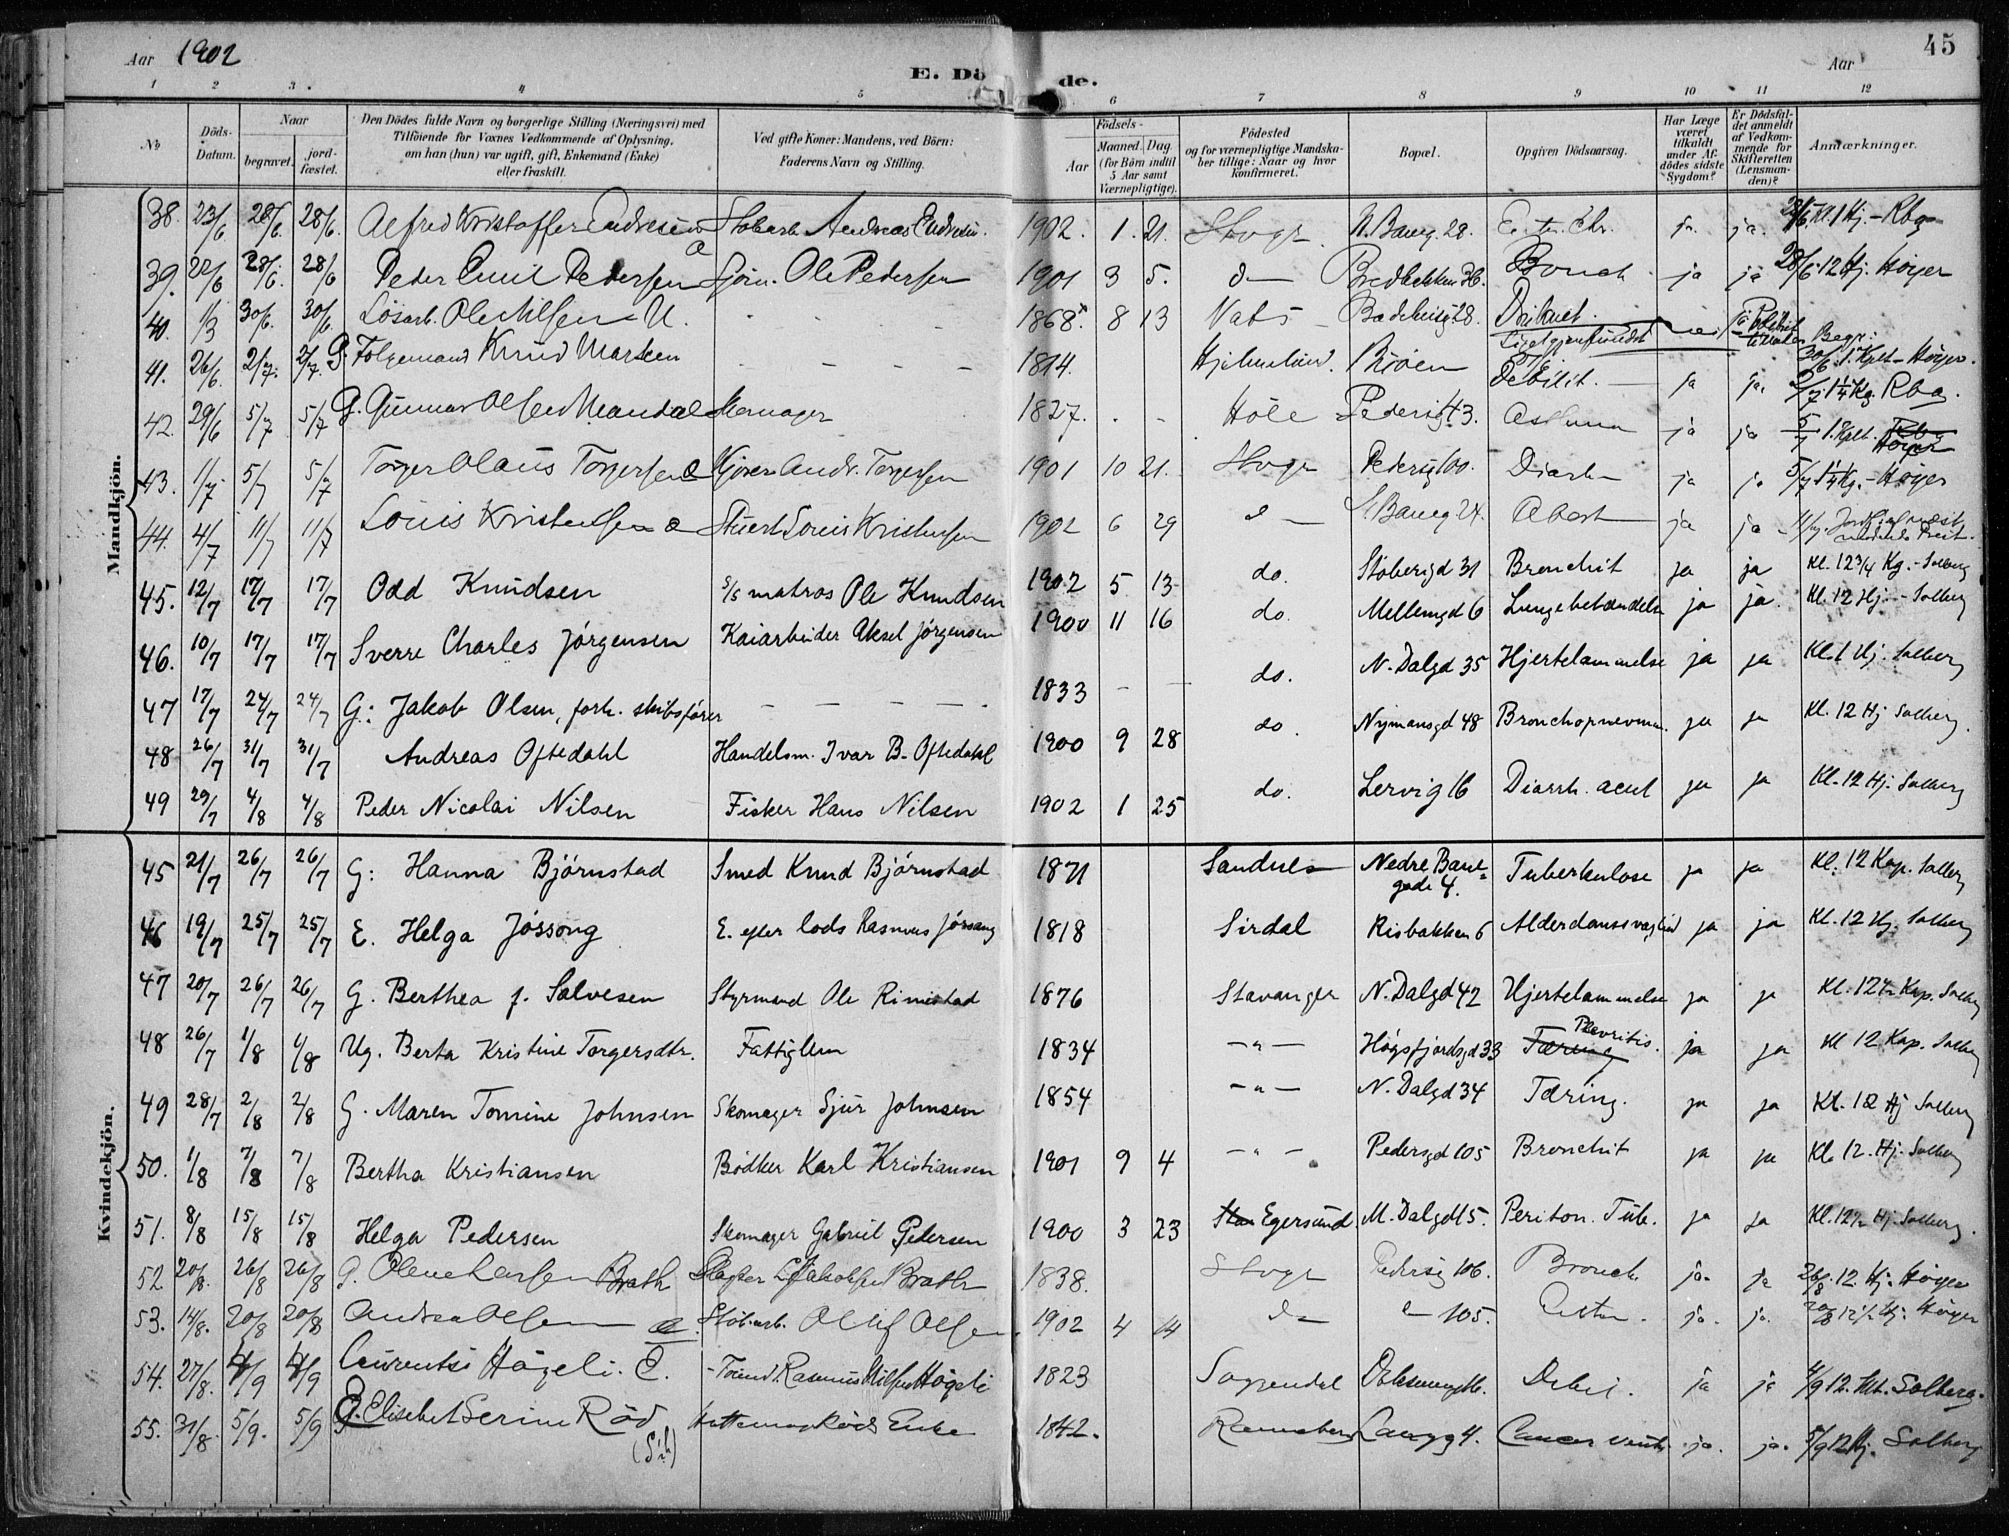 Aar 1902
E. Dö de.
Aar
45
1 2 3. 4 5 6 7 8 9 10 11 12
No
Döds-Datum.
Naar
begravet.
jord-fæstet.
Den Dödes fulde Navn og borgerlige Stilling (Næringsvei) med
Tilföiende for Voxnes Vedkommende af Oplysning,
om han (hun) var ugift, gift, Enkemand (Enke)
eller fraskilt.
Ved gifte Koner: Mandens, ved Börn:
Faderens Navn og Stilling.
Födsels-
Aar
Maaned. Dag.
(for Börn indtil
5 Aar samt
Værnepligtige).
Födested
og for værnepligtige Mandska-
ber tillige: Naar og hvor
konfirmeret.
Bopæl.
Opgiven Dödsaarsag.
Har Læge
været
tilkaldt
under Af-
dödes sidste
Sygdom?
Er Dödsfal-
det anmeldt
af Vedkom-
mende for
Skifteretten
(Lensman-
den)?
Anmærkninger.
Mandkjön.
38. 23/6 28/6. 28/6. Alfred Kristoffer Endresen Andreas Endresen. 1902. 1. 21. Stvgr. N. Baneg. 28. ja. ja. Kl. 1 Hj. - Rbg
39. 22/6 28/6. 28/6 Peder Emil Pedersen Ole Pedersen 1901 3 5. do Bredbakken 36. Bronch ja ja 28/6. 12 Hj. Höyer
40. 1/3 30/6. 30/6. Lösarb. Ole Nilsen U. 1868. 8 13 Vats Badehusg. 28. Druknet.
41. 26/6. 2/7. 2/7. G. Folgemand Knud Martsen 1814. Hjelmeland. Debilit. ja ja. 2/7 1 1/4 Kg. Rbg.
42. 29/6 5/7 5/7 G. Gunnar Olsen Meandal Skomager 1827. Höle Pedersg 43. Asthma ja ja 5/7 1. Kplt. Höyer
43. 1/7. 5/7 5/7 Torger Olaus Torgersen Kjörer Andr. Torgersen 1901 10 21. Stvgr Pedersg 100. Diarh ja ja 5/7 1 1/4 Kg. - Höyer
44. 4/7 11/7 11/7 Louis Kristensen Stuert Louis Kristensen 1902 6 29 do Baneg 24. ja ja
45. 12/7 17/7 17/7 Odd Knudsen s/s matros Ole Knudsen 1902 5 13 do. Stöberigd 31 Bronchit ja ja Kl. 12 3/4 Kg. - Solberg
46. 10/7 17/7 17/7 Sverre Charles Jörgensen Kaiarbeider Aksel Jörgensen 1900 11 16 do. Mellemgd 6 Lungebetændelse ja ja. Kl. 12 Hj. - Solberg
47 17/7 24/7 24/7 G: Jakob Olsen, forh. skibsförer 1833 do. N. Dalgd 35 Hjertelammelse ja ja Kl. 1 Hj. Solberg
48 26/7 31/7 31/7 Andreas Oftedahl Handelsm. Ivar B. Oftedahl 1900 9 28 do. Nymansgd 48 Bronchopnevmon. ja ja Kl. 12 Hj Solberg
49 29/7 4/8 4/8 Peder Nicolai Nilsen Fisker Hans Nilsen 1902 1 25 do. Lervig 16 Diarrh. acut ja ja Kl. 12 Hj. Solberg
Kvindekjön.
45 21/7 26/7 26/7 G: Hanna Björnstad Smed Knud Björnstad 1871 Sandnes Nedre Banegade 4. Tuberkulose ja ja Kl. 12 Kap. Solberg
46 19/7 25/7 25/7 E. Helga Jössong E. efter lods Rasmus Jörsang 1818 Sirdal Risbakken 6 Alderdomssvaghed ja ja Kl. 12 Hj. Solberg
47 20/7 26/7 26/7 G. Berthea f. Salvesen Styrmand Ole Rimestad 1876 Stavanger N. Dalgd 42 Hjertelammelse ja ja Kl. 12 1/2 Kap. Solberg
48 26/7 1/8 1/8 Ug. Berta Kristine Torgersdtr. Fattiglem 1834 -"- Högsfjordsgd 33 Tæring Plevritis. ja ja Kl 12 Kap. Solberg
49 28/7 2/8 2/8 G. Maren Tomine Johnsen Skomager Sjur Johnsen 1854 -"- N. Dalgd 34 Tæring. ja ja Kl. 12 Hj Solberg
50. 1/8 7/8 7/8 Bertha Kristiansen Bödker Karl Kristiansen 1901 9 4 -"- Pedersgd 105 Bronchit ja ja Kl. 12. Hj. Solberg
51. 8/8 15/8 15/8 Helga Pedersen Skomager Gabriel Pedersen 1900 3 23 Stav Egersund M. Dalgd 15. Periton. Tub. ja ja Kl. 12 1/2 Hj. Solberg.
52 20/8. 26/8 26/8 G. Olene Larsen Brath Slagter Brath 1838. Stvgr Pedersg 106. Bronch. ja. ja 26/8. 12. Hj. Höyer
53. 14/8. 20/8 20/8 Andrea Olsen Stöb.arb. Oluf Olsen 1902 4 14 do do 105. ja. ja. 20/8 12 1/2 Hj. Höyer
54. 27/8. 4/9 4/9 Laurentse Högeli. E. Rasmus Nilsen Högeli 1823 Soggendal Debil. ja ja 4/9 12. Solberg.
55. 31/8. 5/9. 5/9 G. Elisebet Serine Röd Enke 1842. Langg 4. Cancer ventr. ja. ja. 5/9 12 Hj. Solberg